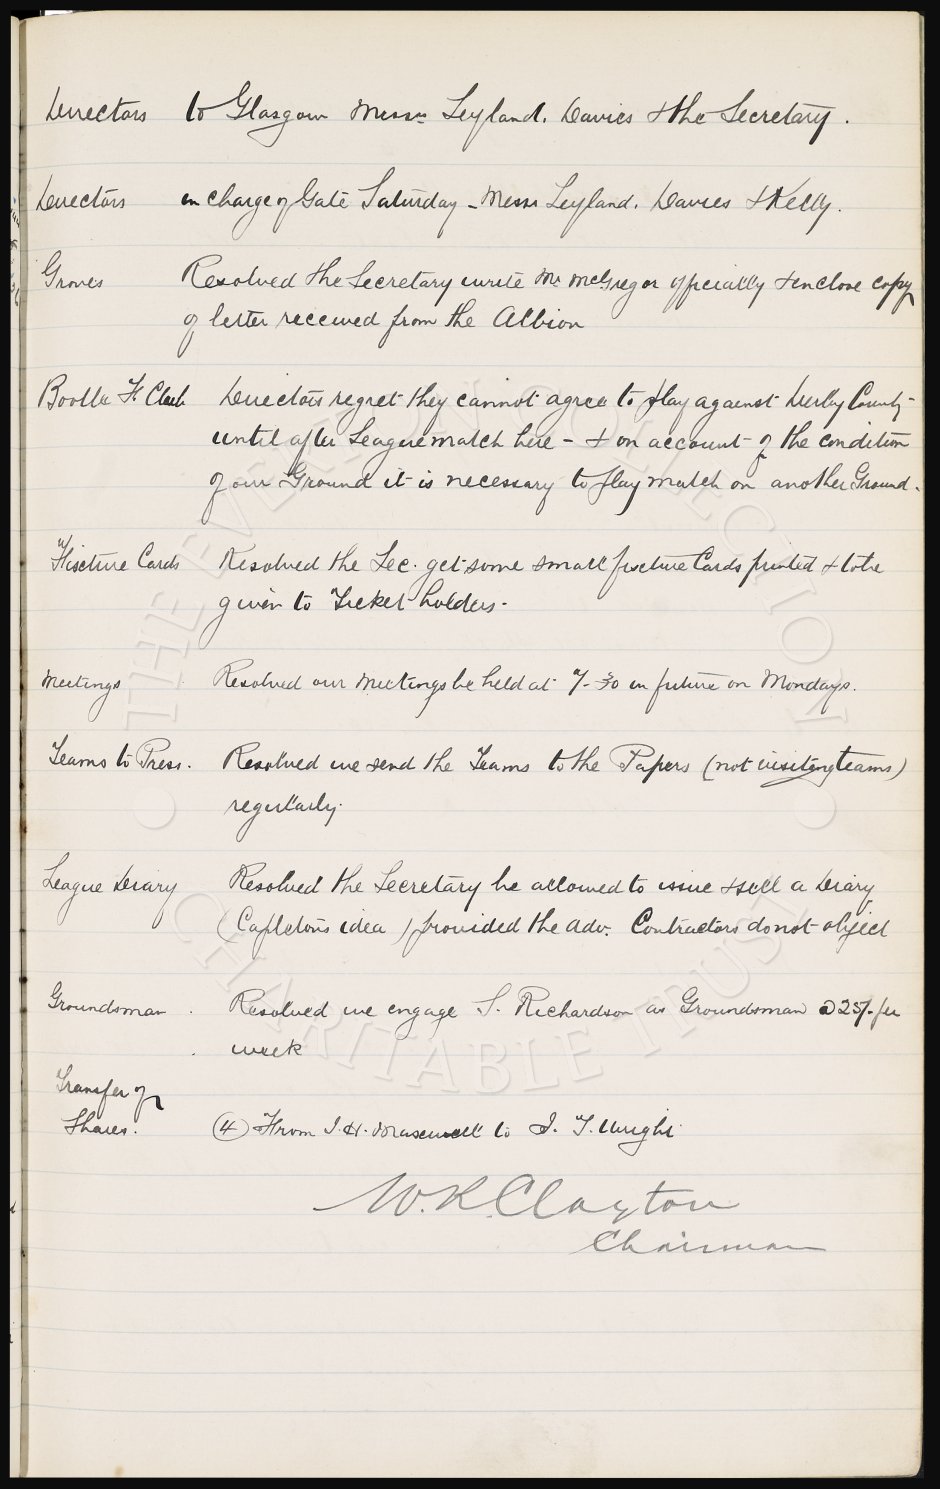 Directors to Glasgow Messrs Leyland. Davies & the Secretary.
Directors in charge of Gate Saturday - Messrs Leyland. Davies & Kelly.
Groves Resolved the Secretary write Mr McGregor officially & enclose copy
of letter received from the Albion
Bootle F. Club Directors regret they cannot agree to play against Derby County
until after League match here - & on account of the condition
of our Ground it is necessary to play match on another Ground.
Fixture Cards Resolved the Sec. get some small fixture Cards printed & to be
given to Ticket holders.
Meetings Resolved our Meetings be held at 7-30 in future on Mondays.
Teams to Press. Resolved we send the Teams to the Papers (not visiting teams)
regularly.
League Diary Resolved the Secretary be allowed to issue & sell a Diary
(Capleton's idea) provided the adv. Contractors do not object
Groundsman. Resolved we engage S. Richardson as Groundsman @ 25/- per
week
Transfer of
Shares. (4) From J. H. Maxwell to J. T. Wright
W. R. Clayton
Chairman
THE EVERTON COLLECTION
CHARITABLE TRUST